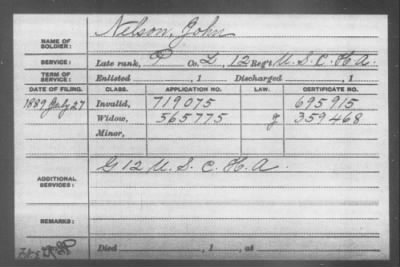 NAME OF SOLDIER: Nelson, John
SERVICE: Late rank, P Co. G, 12 Reg't U.S.C.H.A.
TERM OF SERVICE: Enlisted , 1 Discharged , 1
DATE OF FILING. CLASS. APPLICATION NO. LAW. CERTIFICATE NO.
1889 July 27 Invalid, 719075 695915
Widow, 565775 g 359468
Minor,
ADDITIONAL SERVICES: G 12 U.S.C.H.A.
REMARKS:
Died , 1 , at